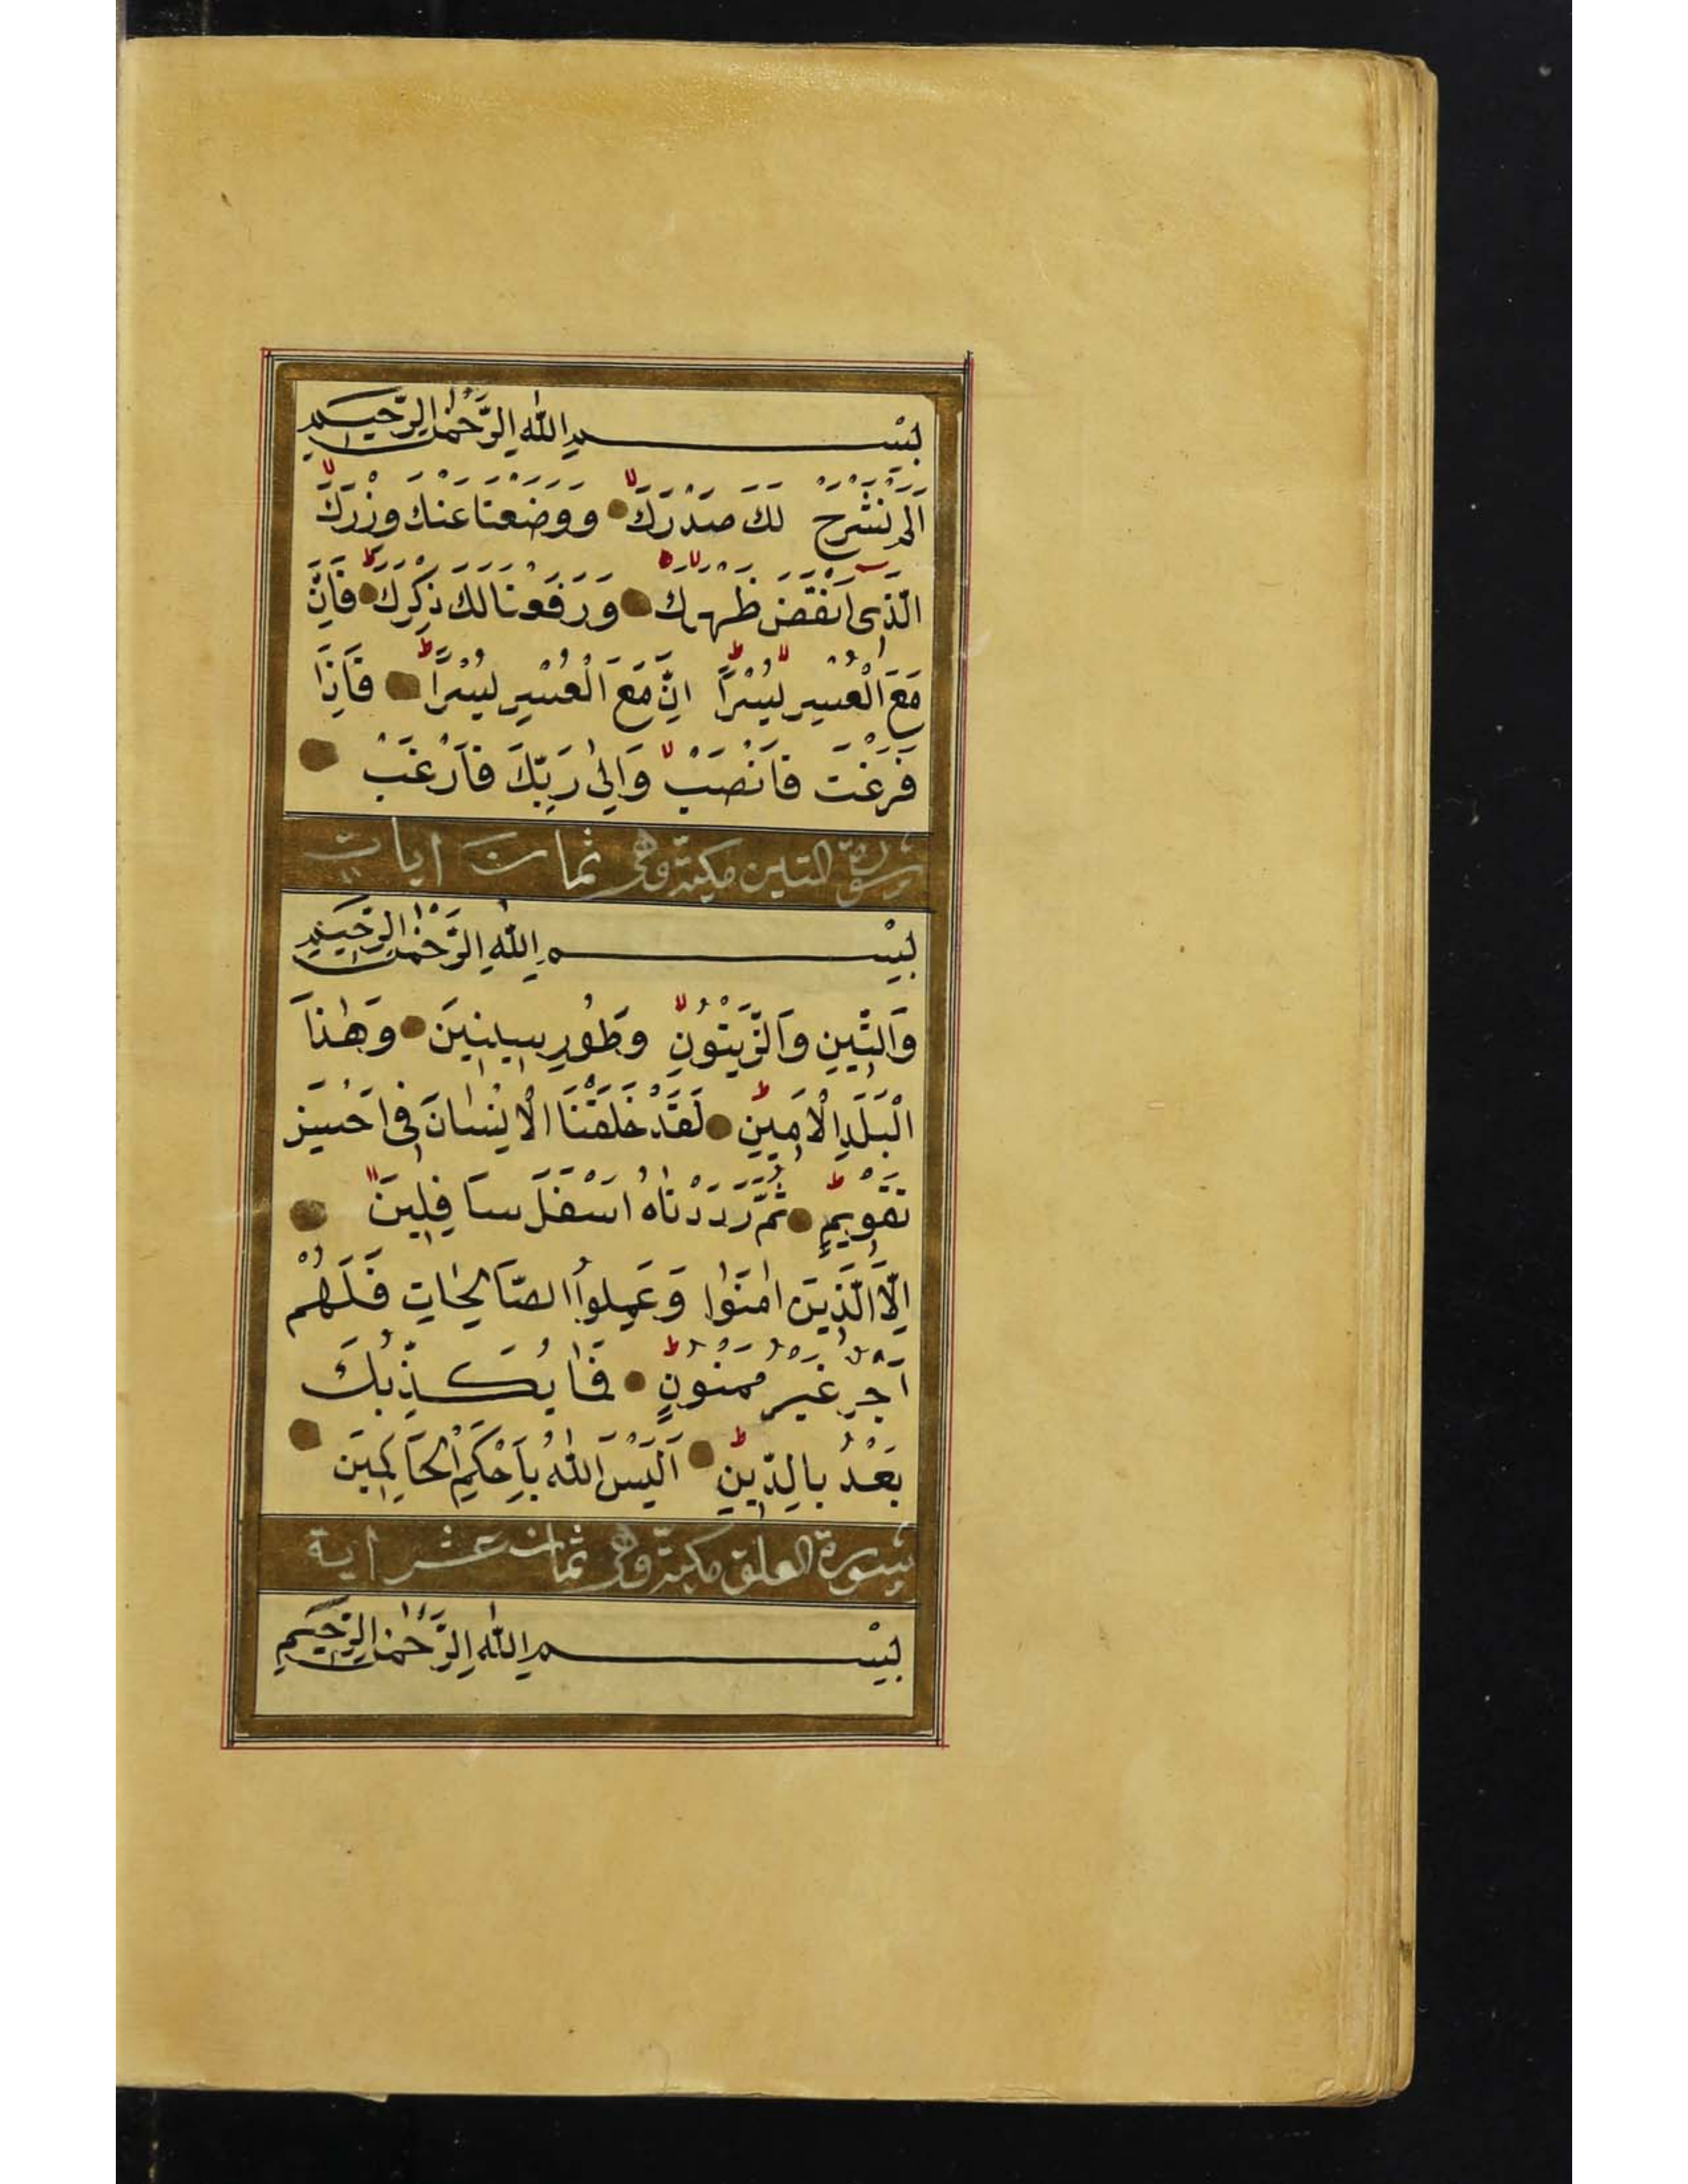 بِسْمِ اللّٰهِ الرَّحْمٰنِ الرَّحِيمِ
اَلَمْ نَشْرَحْ لَكَ صَدْرَكَ وَوَضَعْنَا عَنْكَ وِزْرَكَ
الَّذِى اَنْقَضَ ظَهْرَكَ وَرَفَعْنَا لَكَ ذِكْرَكَ فَاِنَّ
مَعَ الْعُسْرِ يُسْرًا اِنَّ مَعَ الْعُسْرِ يُسْرًا فَاِذَا
فَرَغْتَ فَانْصَبْ وَاِلٰى رَبِّكَ فَارْغَبْ
سورة التين مكية وهى ثمان ايات
بِسْمِ اللّٰهِ الرَّحْمٰنِ الرَّحِيمِ
وَالتِّينِ وَالزَّيْتُونِ وَطُورِ سِينِينَ وَهٰذَا
الْبَلَدِ الْاَمِينِ لَقَدْ خَلَقْنَا الْاِنْسَانَ فِى اَحْسَنِ
تَقْوِيمٍ ثُمَّ رَدَدْنَاهُ اَسْفَلَ سَافِلِينَ
اِلَّا الَّذِينَ اٰمَنُوا وَعَمِلُوا الصَّالِحَاتِ فَلَهُمْ
اَجْرٌ غَيْرُ مَمْنُونٍ فَمَا يُكَذِّبُكَ
بَعْدُ بِالدِّينِ اَلَيْسَ اللّٰهُ بِاَحْكَمِ الْحَاكِمِينَ
سورة العلق مكية وهى ثمان عشر اية
بِسْمِ اللّٰهِ الرَّحْمٰنِ الرَّحِيمِ